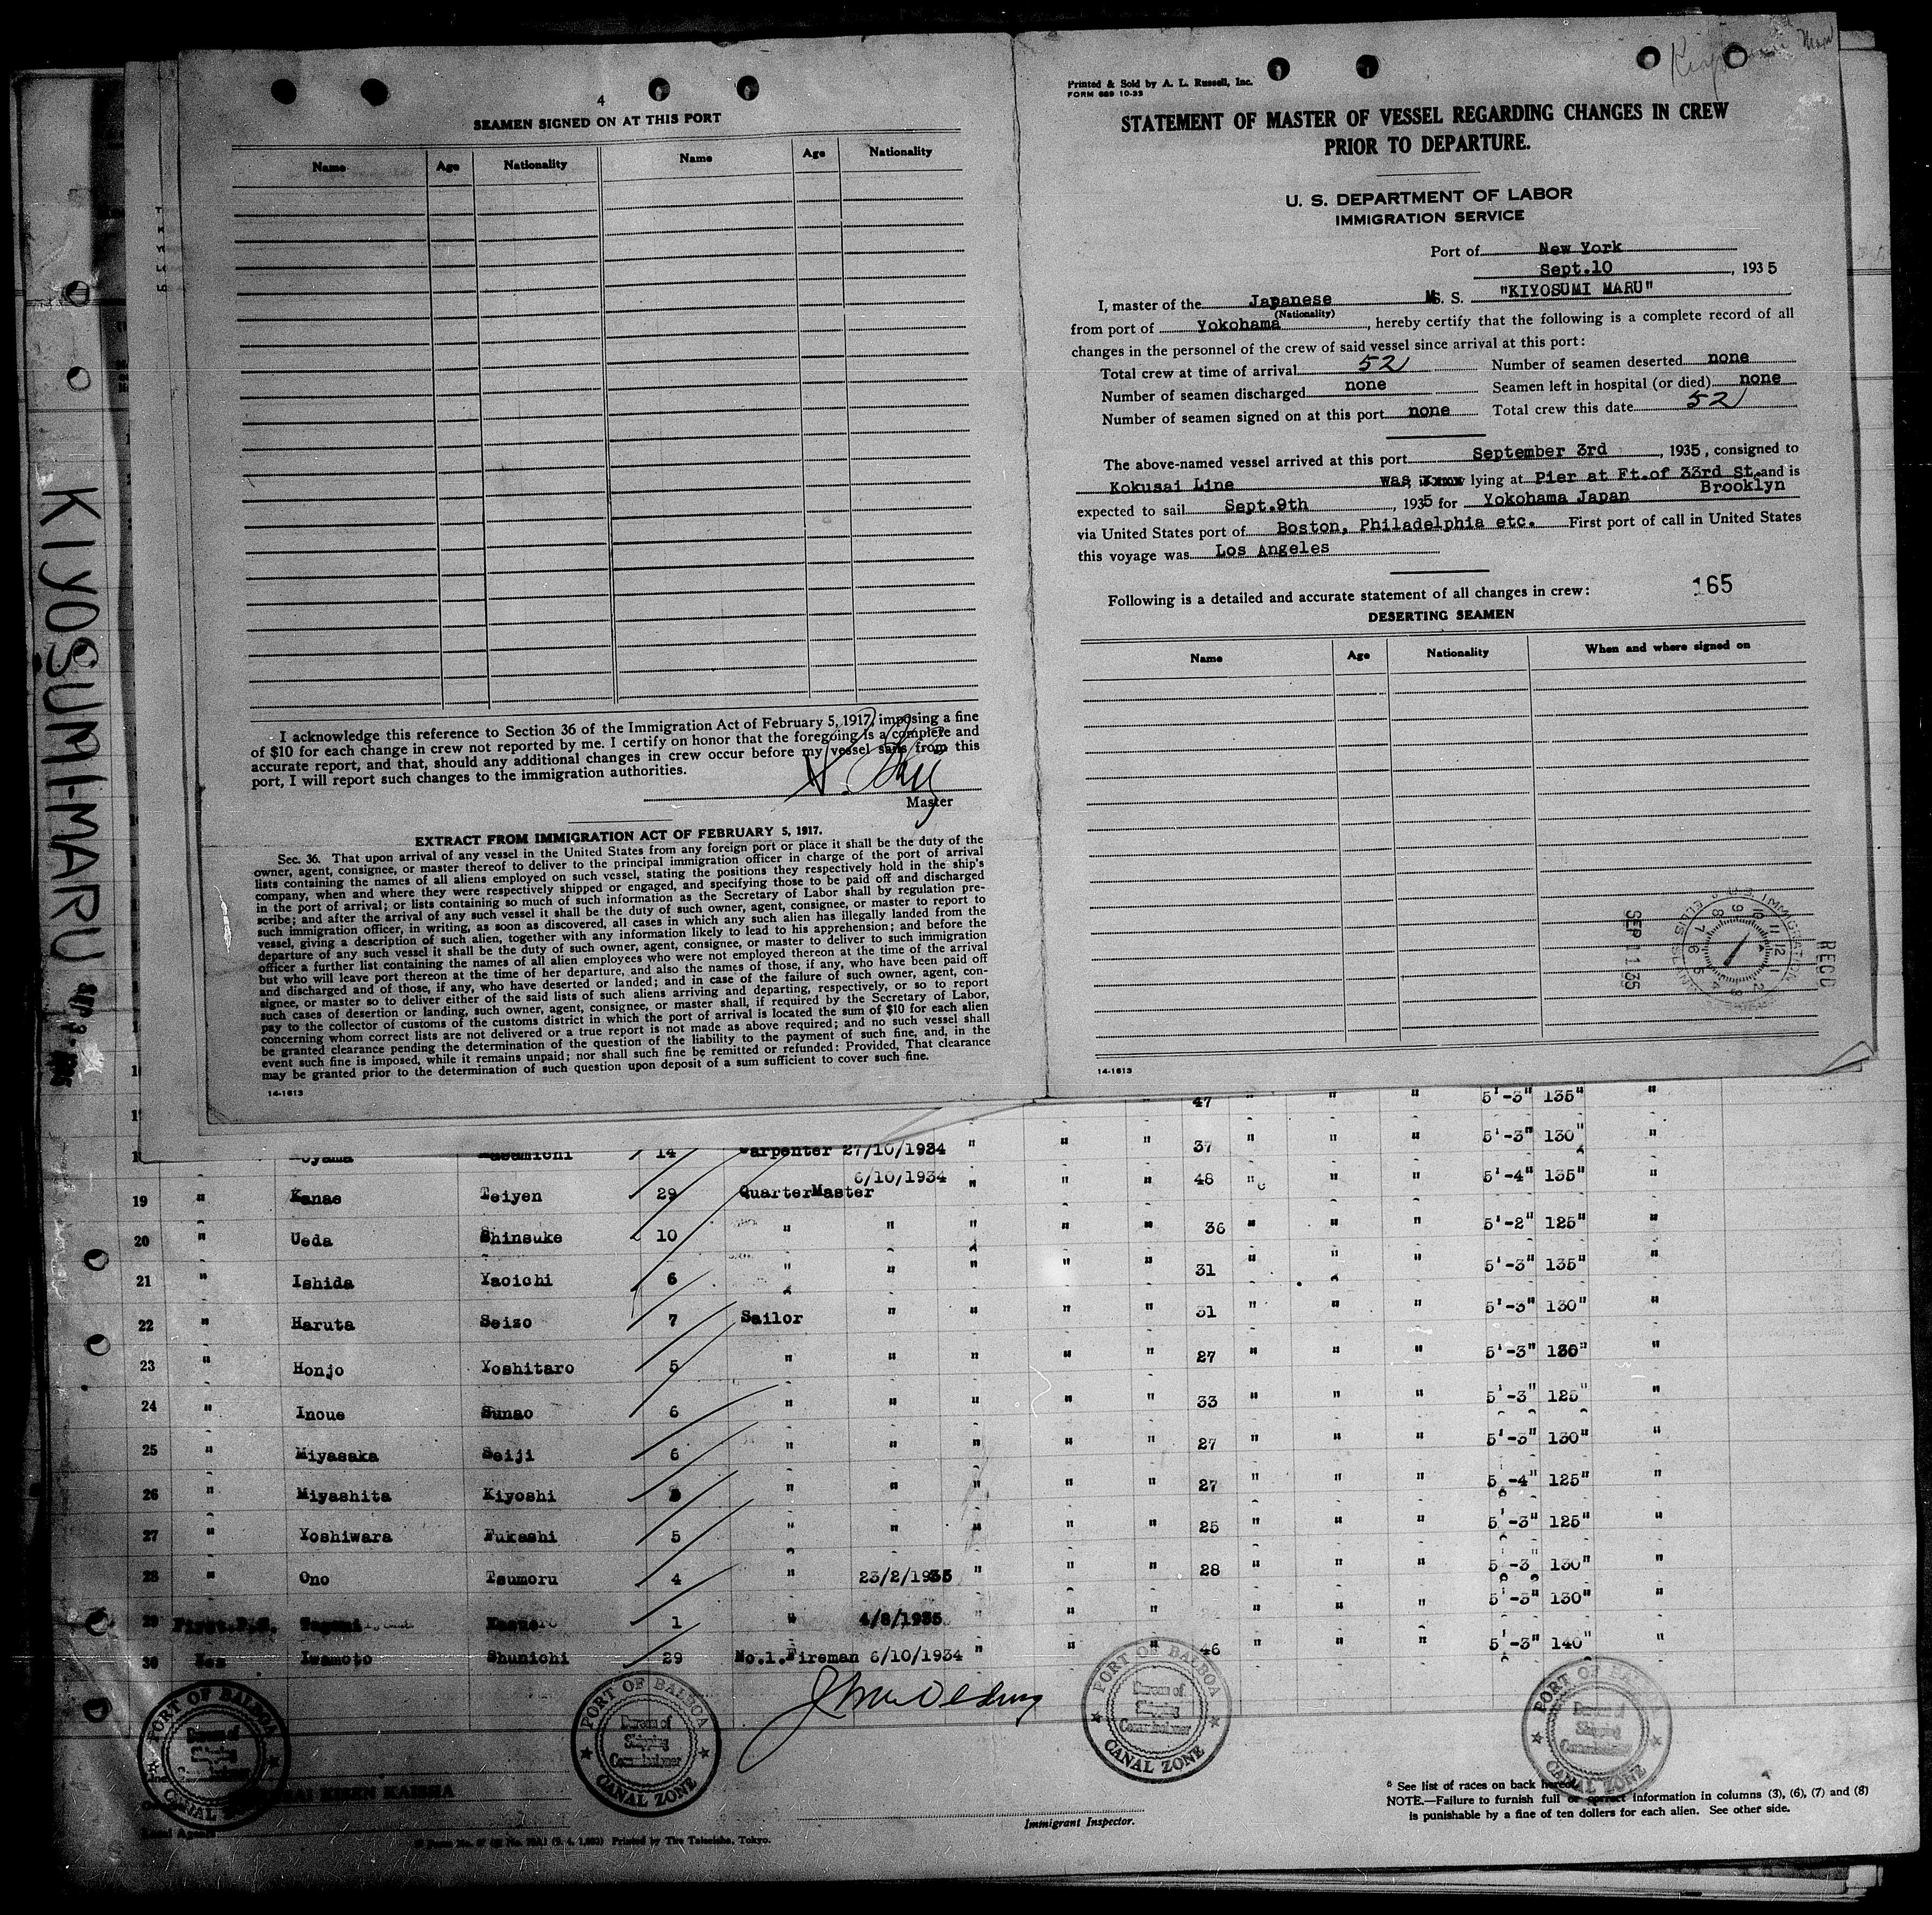 KIYOSUMI-MARU
4
SEAMEN SIGNED ON AT THIS PORT
Name Age Nationality Name Age Nationality
I acknowledge this reference to Section 36 of the Immigration Act of February 5, 1917, imposing a fine
of $10 for each change in crew not reported by me. I certify on honor that the foregoing is a complete and
accurate report, and that, should any additional changes in crew occur before my vessel sails from this
port, I will report such changes to the immigration authorities.
Master
EXTRACT FROM IMMIGRATION ACT OF FEBRUARY 5, 1917.
Sec. 36. That upon arrival of any vessel in the United States from any foreign port or place it shall be the duty of the
owner, agent, consignee, or master thereof to deliver to the principal immigration officer in charge of the port of arrival
lists containing the names of all aliens employed on such vessel, stating the positions they respectively hold in the ship's
company, when and where they were respectively shipped or engaged, and specifying those to be paid off and discharged
in the port of arrival; or lists containing so much of such information as the Secretary of Labor shall by regulation pre-
scribe; and after the arrival of any such vessel it shall be the duty of such owner, agent, consignee, or master to report to
such immigration officer, in writing, as soon as discovered, all cases in which any such alien has illegally landed from the
vessel, giving a description of such alien, together with any information likely to lead to his apprehension; and before the
departure of any such vessel it shall be the duty of such owner, agent, consignee, or master to deliver to such immigration
officer a further list containing the names of all alien employees who were not employed thereon at the time of the arrival
but who will leave port thereon at the time of her departure, and also the names of those, if any, who have been paid off
and discharged and of those, if any, who have deserted or landed; and in case of the failure of such owner, agent, con-
signee, or master so to deliver either of the said lists of such aliens arriving and departing, respectively, or so to report
such cases of desertion or landing, such owner, agent, consignee, or master shall, if required by the Secretary of Labor,
pay to the collector of customs of the customs district in which the port of arrival is located the sum of $10 for each alien
concerning whom correct lists are not delivered or a true report is not made as above required; and no such vessel shall
be granted clearance pending the determination of the question of the liability to the payment of such fine, and, in the
event such fine is imposed, while it remains unpaid; nor shall such fine be remitted or refunded: Provided, That clearance
may be granted prior to the determination of such question upon deposit of a sum sufficient to cover such fine.
14-1613
Printed & Sold by A. L. Russell, Inc.
FORM 689 10-33
STATEMENT OF MASTER OF VESSEL REGARDING CHANGES IN CREW
PRIOR TO DEPARTURE.
U. S. DEPARTMENT OF LABOR
IMMIGRATION SERVICE
Port of New York
Sept.10, 1935
I, master of the Japanese M.S. S. "KIYOSUMI MARU"
(Nationality)
from port of Yokohama, hereby certify that the following is a complete record of all
changes in the personnel of the crew of said vessel since arrival at this port:
Total crew at time of arrival 52 Number of seamen deserted none
Number of seamen discharged none Seamen left in hospital (or died) none
Number of seamen signed on at this port none Total crew this date 52
The above-named vessel arrived at this port September 3rd, 1935, consigned to
Kokusai Line was lying at Pier at Ft.of 33rd St. and is
Brooklyn
expected to sail Sept.9th, 1935 for Yokohama Japan
via United States port of Boston, Philadelphia etc. First port of call in United States
this voyage was Los Angeles
Following is a detailed and accurate statement of all changes in crew: 165
DESERTING SEAMEN
Name Age Nationality When and where signed on
REC'D
U.S. IMMIGRATION
ELLIS ISLAND
SEP 11 35
14-1613
47 " " " 5'-3" 135" "
14 Carpenter 27/10/1934 " " " 37 " " " 5'-3" 130" "
19 " Kanae Teiyen 29 QuarterMaster 6/10/1934 " " " 48 " " " 5'-4" 135" "
20 " Ueda Shinsuke 10 " " " " " 36 " " " 5'-2" 125" "
21 " Ishida Yaoichi 6 " " " " " 31 " " " 5'-3" 135" "
22 " Haruta Seizo 7 Sailor " " " " 31 " " " 5'-3" 130" "
23 " Honjo Yoshitaro 5 " " " " " 27 " " " 5'-3" 130" "
24 " Inoue Sunao 6 " " " " " 33 " " " 5'-3" 125" "
25 " Miyasaka Seiji 6 " " " " " 27 " " " 5'-3" 130" "
26 " Miyashita Kiyoshi " " " " " 27 " " " 5'-4" 125" "
27 " Yoshiwara Fukashi 5 " " " " " 25 " " " 5'-3" 125" "
28 " Ono Tsumoru 4 " 23/2/1935 " " " 28 " " " 5'-3" 130" "
29 1 " 4/8/1935 " " " " " " 5'-3" 130" "
30 Yes Iwamoto Shunichi 29 No.1.Fireman 6/10/1934 " " " 46 " " " 5'-3" 140" "
PORT OF BALBOA Bureau of Shipping Commissioner CANAL ZONE
PORT OF BALBOA Bureau of Shipping Commissioner CANAL ZONE
PORT OF BALBOA Bureau of Shipping Commissioner CANAL ZONE
PORT OF BALBOA Bureau of Shipping Commissioner CANAL ZONE
KISEN KAISHA
Immigrant Inspector.
* See list of races on back hereof.
NOTE.—Failure to furnish full or correct information in columns (3), (6), (7) and (8)
is punishable by a fine of ten dollars for each alien. See other side.
Printed by The Taiseisha, Tokyo.